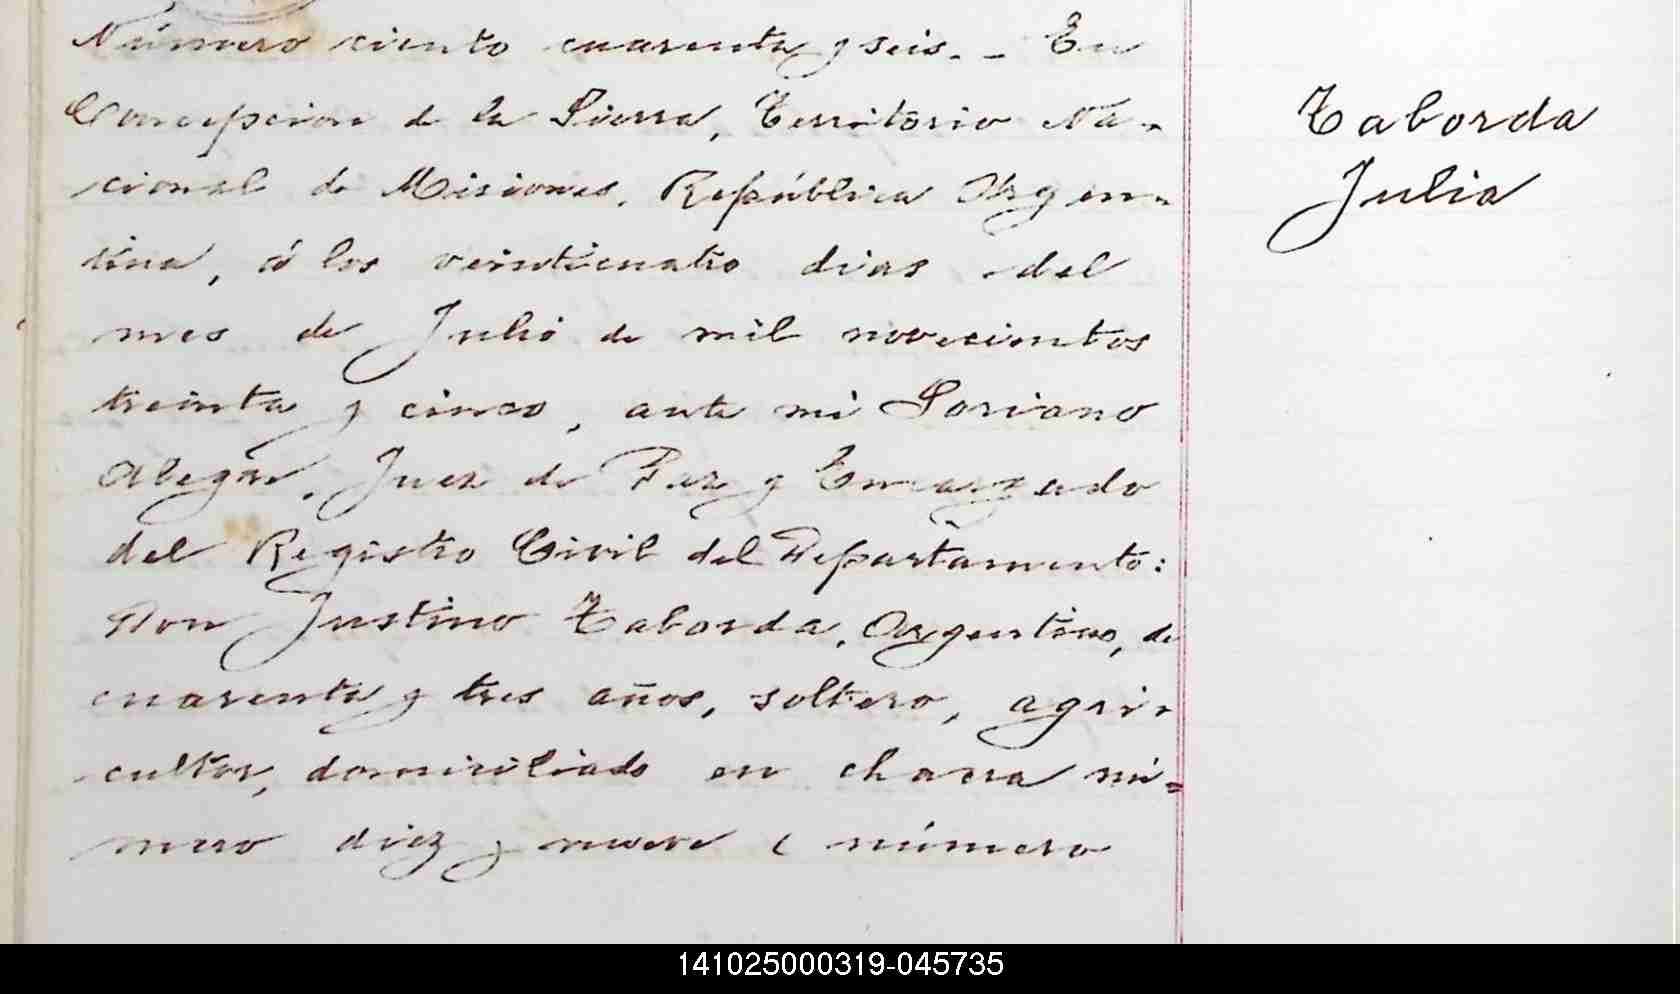 Número ciento cuarenta y seis. - En
Concepcion de la Sierra, Territorio Na-
cional de Misiones, República Argen-
tina, á los veinticuatro dias del
mes de Julio de mil novecientos
treinta y cinco, ante mi Soriano
Alegre, Juez de Paz y Encargado
del Registro Civil del Departamento:
Don Justino Taborda, Argentino, de
cuarenta y tres años, soltero, agri-
cultor, domiciliado en chacra nú-
mero diez y nueve, número
Taborda
Julia
141025000319-045735